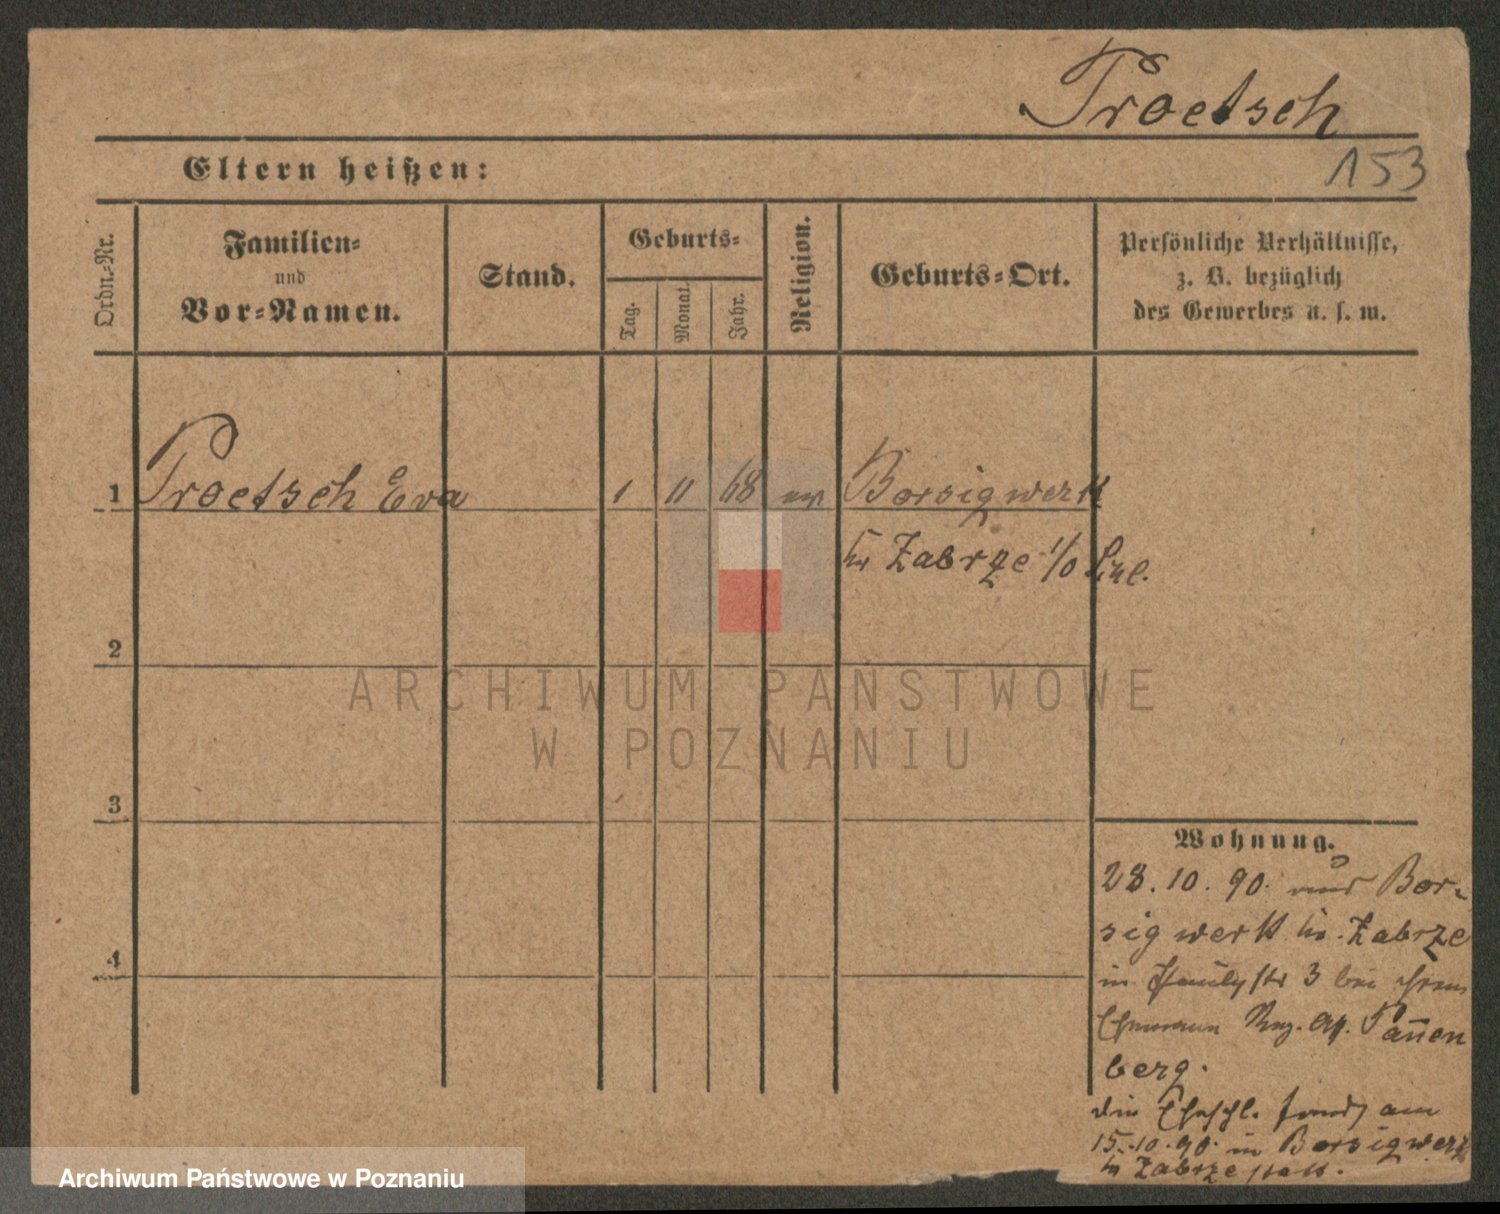 Troetsch
Eltern heißen:
153
Ordn.-Nr.
Familien-
und
Vor-Namen.
Stand.
Geburts-
Tag.
Monat.
Jahr.
Religion.
Geburts-Ort.
Persönliche Verhältnisse,
z. B. bezüglich
des Gewerbes u. s. w.
1 Troetsch Eva 1 11 68 ev. Borsigwerk
Zabrze
2
3
4
Wohnung.
28. 10. 90. aus Bor-
sigwerk Kr. Zabrze
in 3 bei ihrem
Ehemann Reg. Pannen
berg.
die Eheschl. fand am
15.10.90. in Borsigwerk
Zabrze statt.
ARCHIWUM PAŃSTWOWE
W POZNANIU
Archiwum Państwowe w Poznaniu